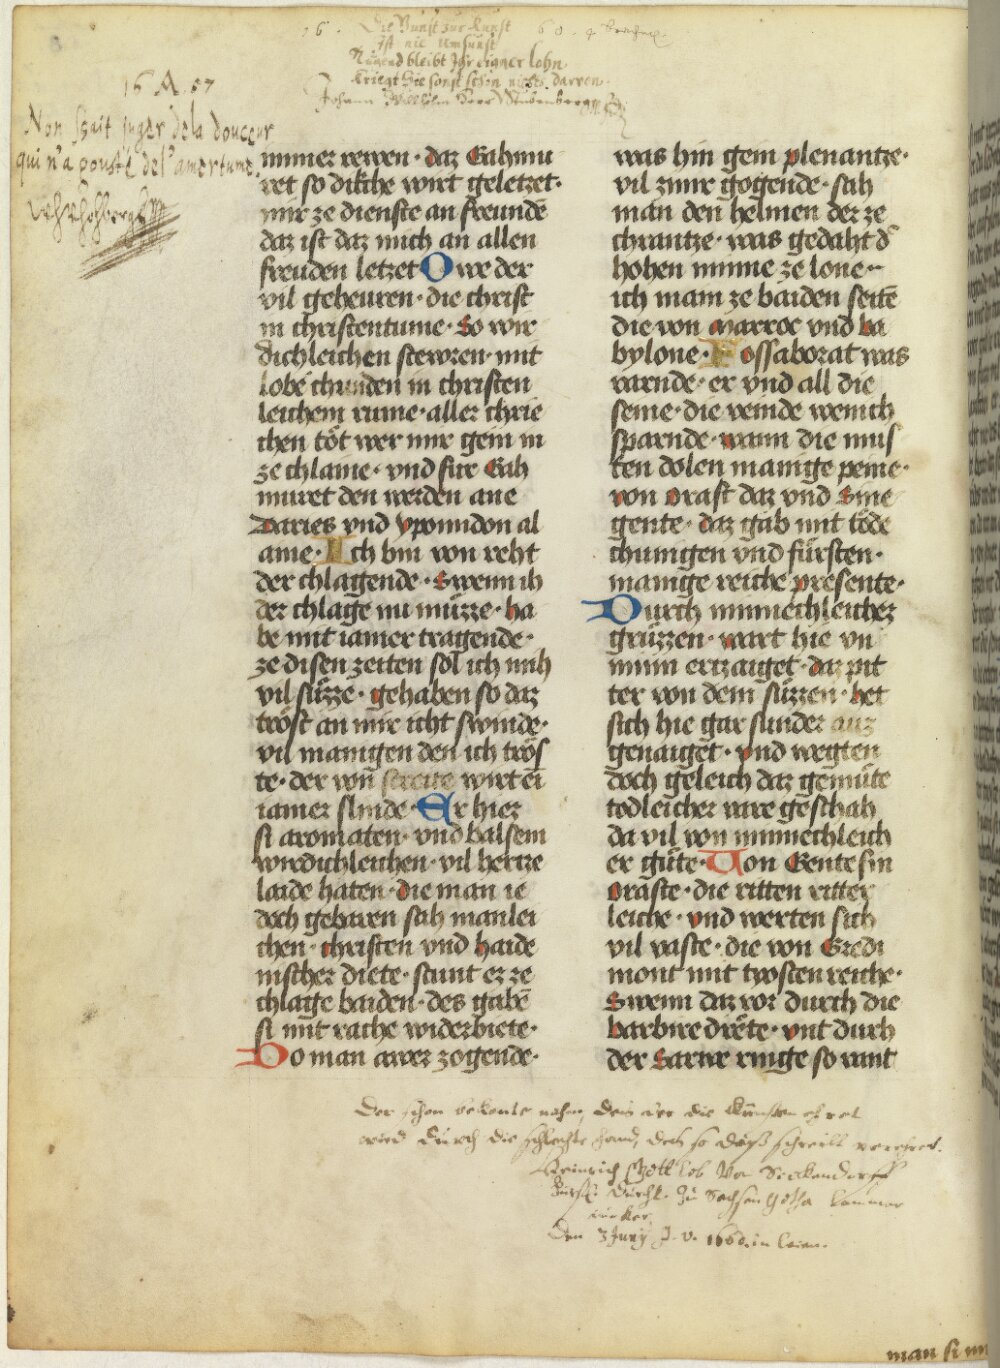 16 60
Die Kunst zur Kunst
ist nie umsunst
Tugend bleibt Ihr eigner lohn
kriegt Sie sonst schon nichts darvon.
Johann Wilhelm Herr Stubenberg
16 A. 57
Non sçait juger de la douceur
qui n'a gousté de l'amertume.
immer rewen · daz Gahmu
ret so dikche wirt geletzet ·
mir ze dienste an freunde͂
daz ist daz mich an allen
freuden letzet Owe der
vil geheuren · die christ
in christentume · So wir
dichleichen stewren · mit
lobe chunden in christen
leichem rume · aller chrie
chen tot wer mir gein in
ze chlaine · vnd fure Gah
muret den werden ane
Daries vnd yponidon al
aine · Ich bin von reht
der chlagende · Swenn ih
der chlage nu muͤzze · ha
be mit iamer tragende ·
ze disen zeiten sol ich mih
vil suͤzze · gehaben so daz
trost an mir icht swinde ·
vil manigen den ich troͤs
te · der von streite wirt ei͂
iamer slinde · Er hiez
si aromaten · vnd balsem
wirdichleichen · vil hertze
laide haten · die man ie
doch gebaren sah manlei
chen · christen vnd haide
nischer diete · stunt er ze
chlage baiden · des gabe͂
si mit rache widerbiete ·
Do man awer zogende ·
was hin gein plenantze ·
vil zmir gogende · sah
man den helmen der ze
chrantze · was gedaht d͛
hohen minne ze lone ·
ich main ze baiden seite͂
die von Marroc vnd ba
bylone · Fossaborat was
varnde · er vnd all die
seine · die veinde wenich
sparnde · wann die mus
ten dolen manige peine ·
von Orast daz vnd Sine
gente · daz gab mit tode
chunigen vnd fuͤrsten ·
manige reiche presente ·
Durch minnechleichez
gruͤzzen · wart hie vn
minn ertzaiget · daz pit
ter von dem suͤzzen · het
sich hie gar sunder auz
genaiget · vnd wegten
doch geleich daz gemuͤte
todleicher vare geschah
da vil von minnechleich
er guͤte · Von Gentesin
Oraste · die ritten ritter
leiche · vnd werten sich
vil vaste · die von Gredi
mont mit tyosten reiche ·
Swenn daz vor durch die
barbire drete · vnt durh
der Sarwe ringe so want
Der schon bekante nahm, dein der die Künsten ehret
wird durch die schlechte hand, des so dieß schreibt verehret.
Heinrich Gottlob Von Seckendorff
Fürstl. Durchl. Zu Sachsen Gotha Cammer
Juncker.
Den 3 Juny
man si